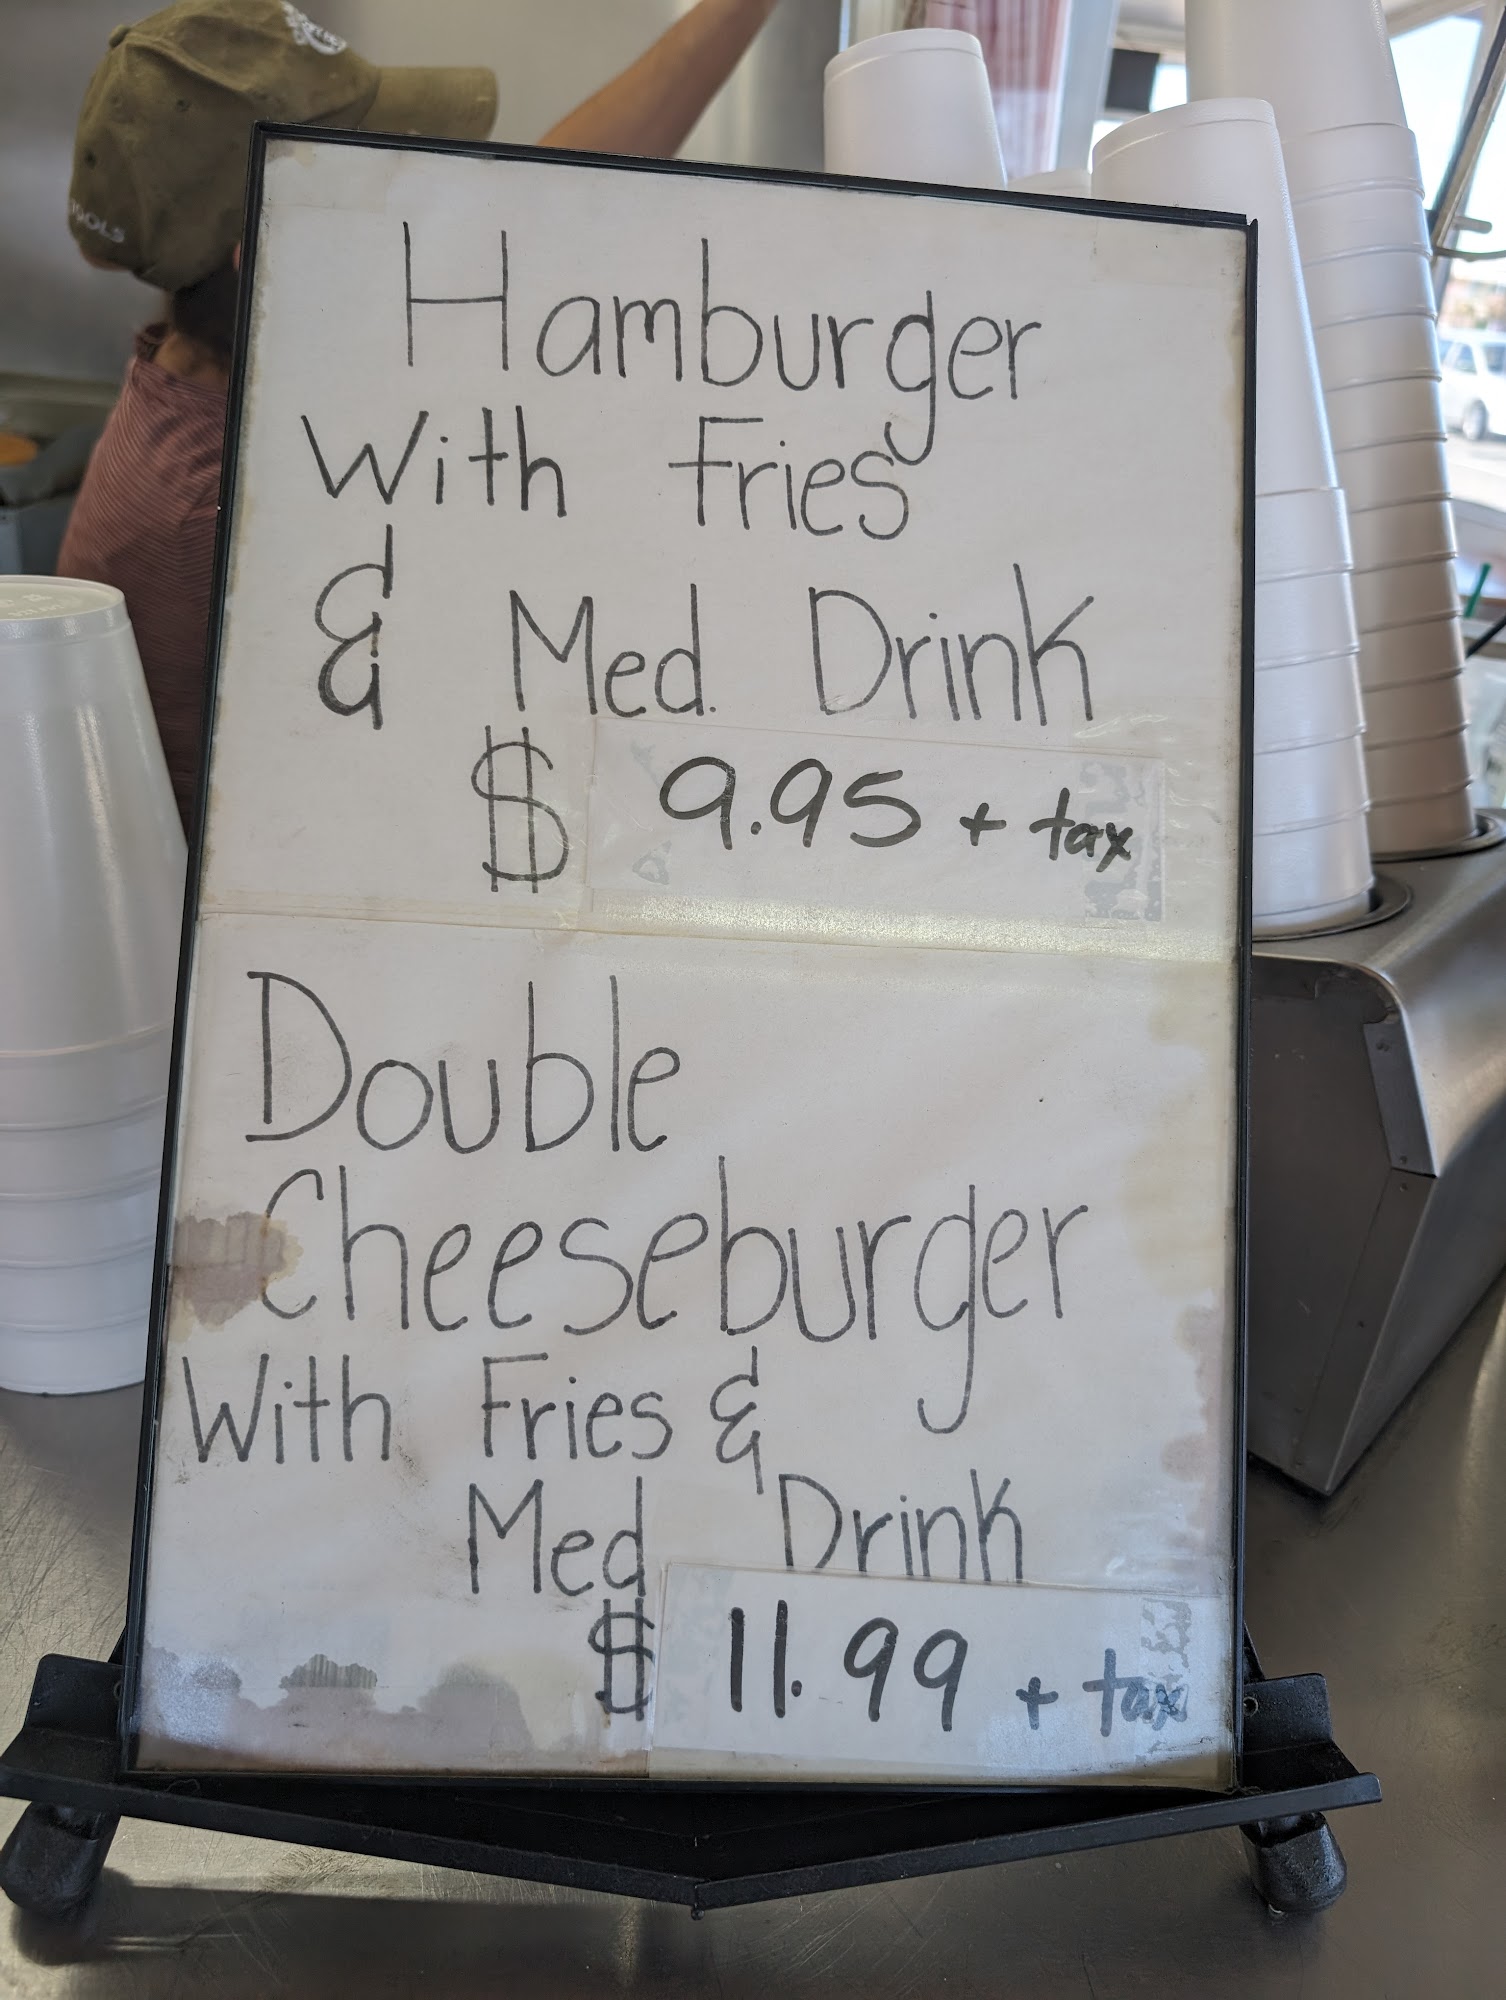 Hamburger
With Fries
& Med. Drink
$ 9.95 + tax
Double
Cheeseburger
With Fries &
Med Drink
$ 11.99 + tax